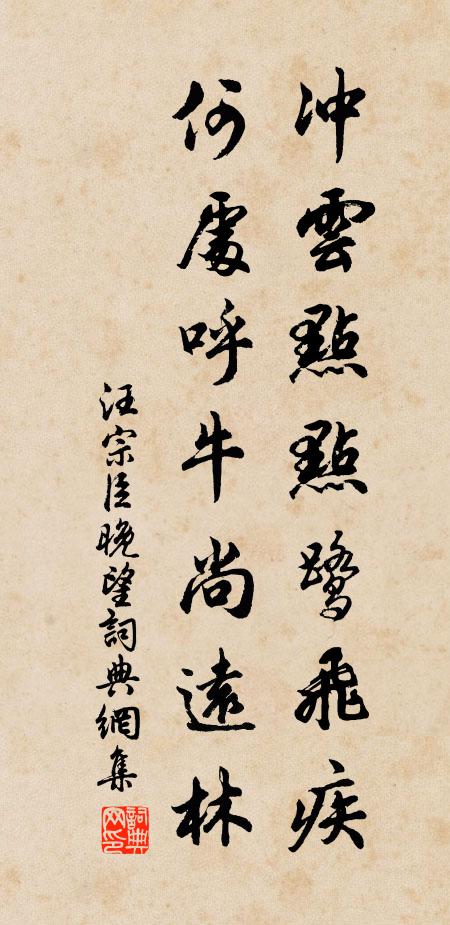 冲雲點點鷺飛疾
何處呼牛尚遠林
汪宗臣晚望詞典網集
詞典網印